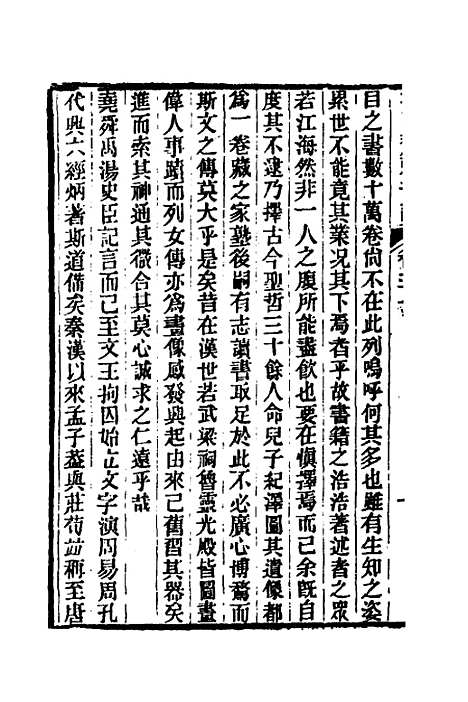 目之書數十萬卷尙不在此列嗚呼何其多也雖有生知之姿
累世不能竟其業况其下焉者乎故書籍之浩浩著述者之眾
若江海然非一人之腹所能盡飲也要在愼擇焉而已余旣自
度其不逮乃擇古今聖哲三十餘人命兒子紀澤圖其遺像都
爲一卷藏之家塾後嗣有志讀書取足於此不必廣心博騖而
斯文之傳莫大乎是矣昔在漢世若武梁祠魯靈光殿皆圖畫
偉人事蹟而列女傳亦爲畫像感發興起由來已舊習其器矣
進而索其神通其微合其莫心誠求之仁遠乎哉
堯舜禹湯史臣記言而已至文王拘囚始立文字演周易周孔
代興六經炳著斯道備矣秦漢以來孟子蓋與莊荀並稱至唐